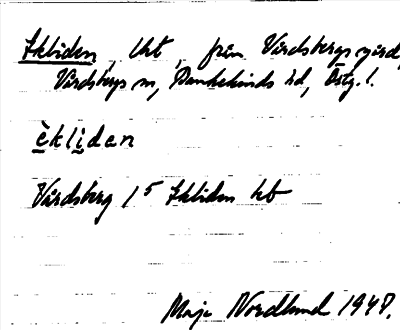 Ekliden, Uht, från Vårdsbergs gård,
Vårdsbergs sn, Bankekinds hd, Östg. l.
èkli̱den
Vårdsberg 1⁵ Ekliden ht
Maja Nordlund 1948.